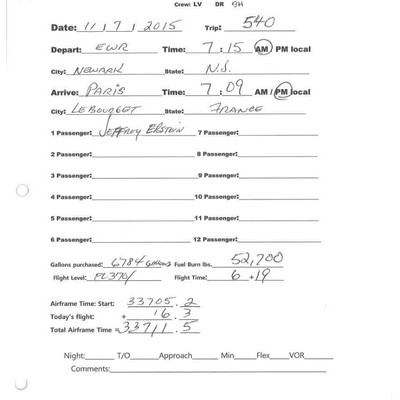 Crew: LV DR GH
Date: 11 / 7 / 2015 Trip: 540
Depart: EWR Time: 7 : 15 AM / PM local
City: NEWARK State: N.J.
Arrive: PARIS Time: 7 : 09 AM / PM local
City: LEBOURGET State: FRANCE
1 Passenger: JEFFREY EPSTEIN 7 Passenger:
2 Passenger: 8 Passenger:
3 Passenger: 9 Passenger:
4 Passenger: 10 Passenger:
5 Passenger: 11 Passenger:
6 Passenger: 12 Passenger:
Gallons purchased: 6784 Gallons Fuel Burn lbs. 52,700
Flight Level: FL370/ Flight Time: 6 +19
Airframe Time: Start: 33705.2
Today's flight: + 6.3
Total Airframe Time = 33711.5
Night: T/O Approach Min Flex VOR
Comments: